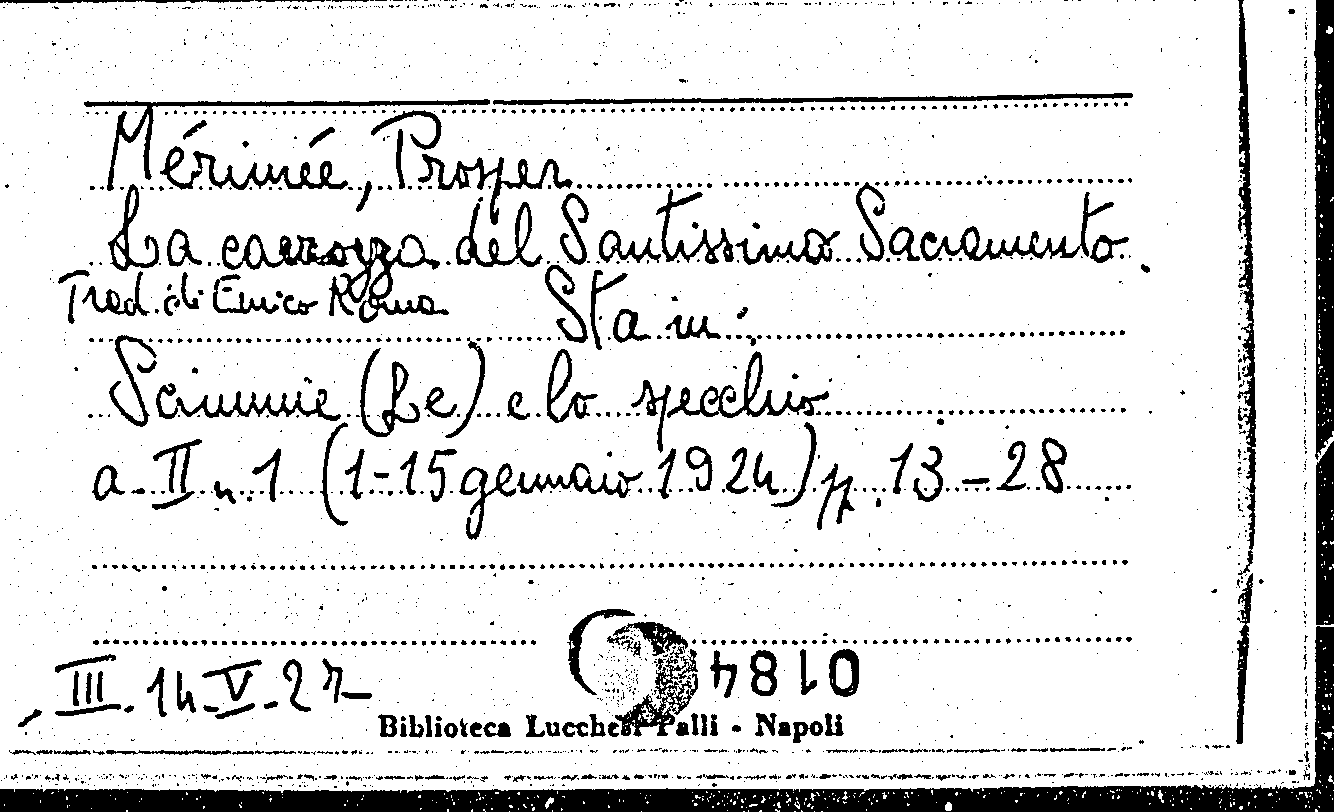 Mérimée, Prosper
La carrozza del Santissimo Sacramento.
Trad. di Enrico Roma Sta in:
Scimmie (Le) e lo specchio
a. II n. 1 (1-15 gennaio 1924) pp. 13-28
0184
III. 14. V. 27
Biblioteca Lucchesi-Palli - Napoli